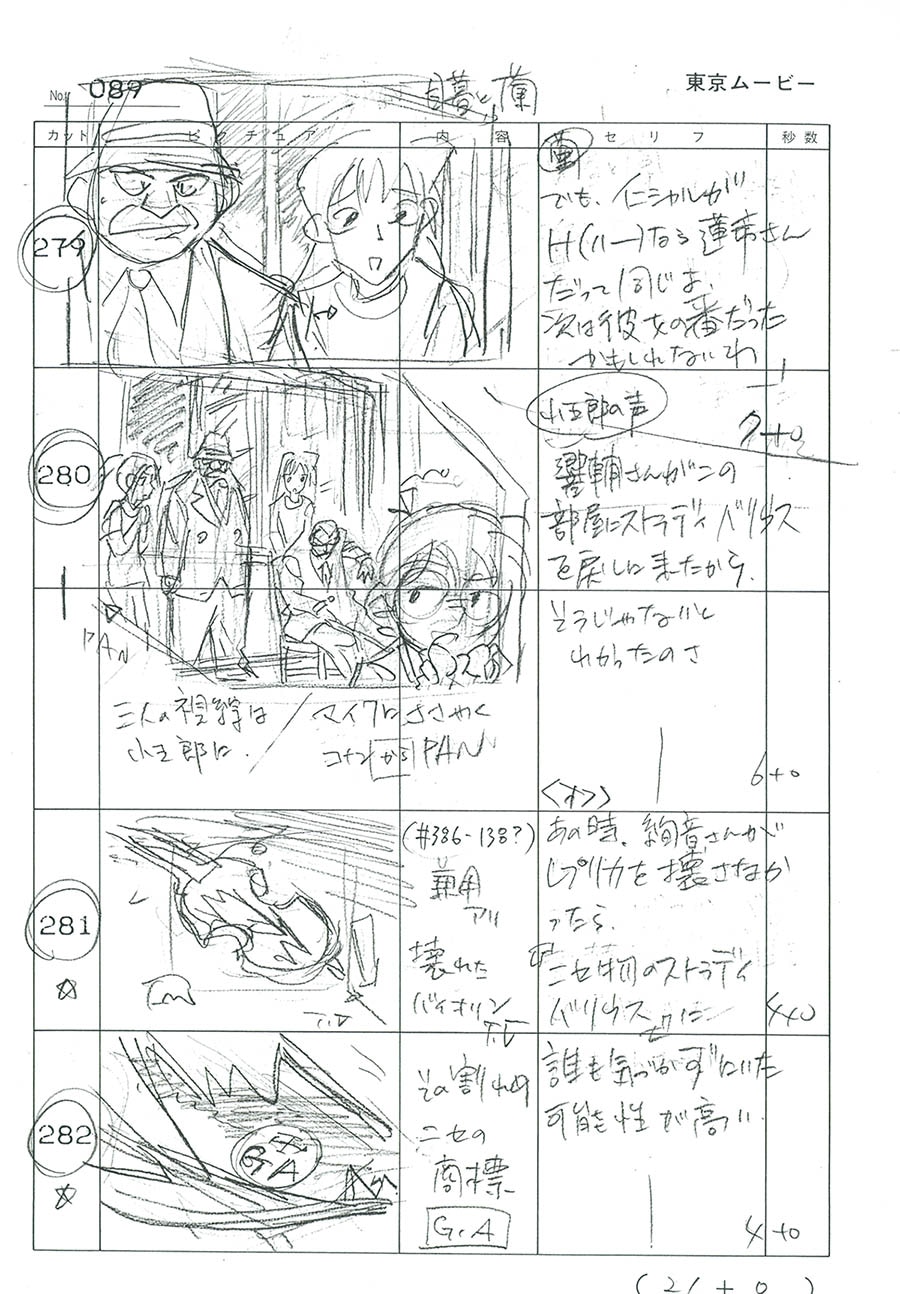 No. 089
目暮と蘭
東京ムービー
カット ピクチュア 内容 セリフ 秒数
279
蘭
でも、イニシャルが
H(ハー)なら蓮希さん
だって同じよ、
次は彼女の番だった
かもしれないわ
7+0
280
PAN
三人の視線は
小五郎に.
マイクにささやく
コナンからPAN
小五郎の声
響輔さんがこの
部屋にストラディバリウス
を戻しに来たから、
そうじゃないと
わかったのさ
6+0
281
(#386-138?)
兼用
アリ
壊れた
バイオリン
T.B
<オフ>
あの時、絢音さんが
レプリカを壊さなか
ったら、
ニセ物のストラディ
バリウスに
4+0
282
その割れ口
ニセの
商標
G.A
誰も気づかずにいた
可能性が高い.
4+0
(21+0)